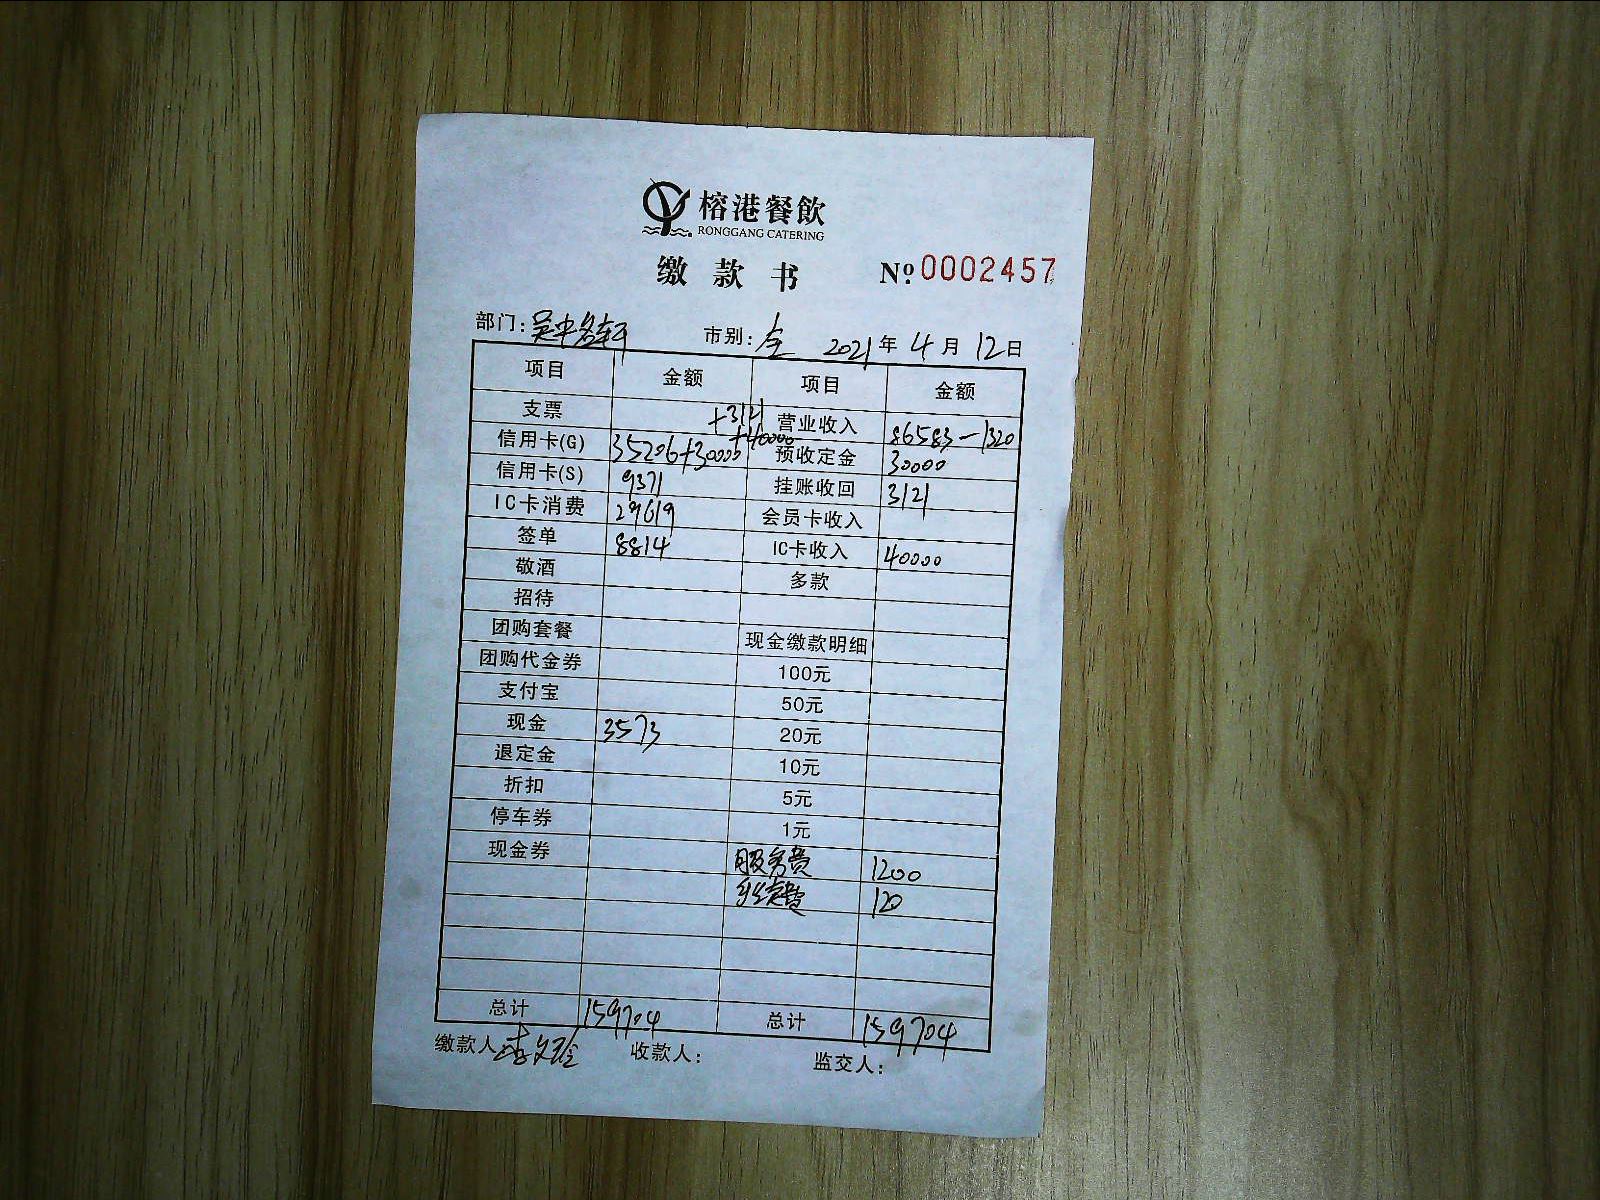 榕港餐飲
RONGGANG CATERING
缴款书 №0002457
部门:吴中名轩 市别:全 2021年4月12日
项目 金额 项目 金额
支票 营业收入 86583-1320
信用卡(G) 35206+30000+3121+40000 预收定金 30000
信用卡(S) 9371 挂账收回 3121
IC卡消费 29619 会员卡收入
签单 8814 IC卡收入 40000
敬酒 多款
招待
团购套餐 现金缴款明细
团购代金券 100元
支付宝 50元
现金 3573 20元
退定金 10元
折扣 5元
停车券 1元
现金券 服务费 1200
120
总计 159704 总计 159704
缴款人 李文 收款人: 监交人: